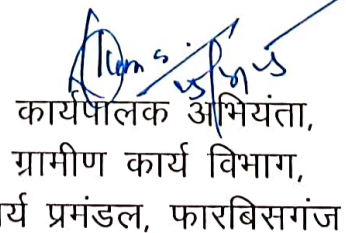 कार्यपालक अभियंता,
ग्रामीण कार्य विभाग,
र्य प्रमंडल, फारबिसगंज